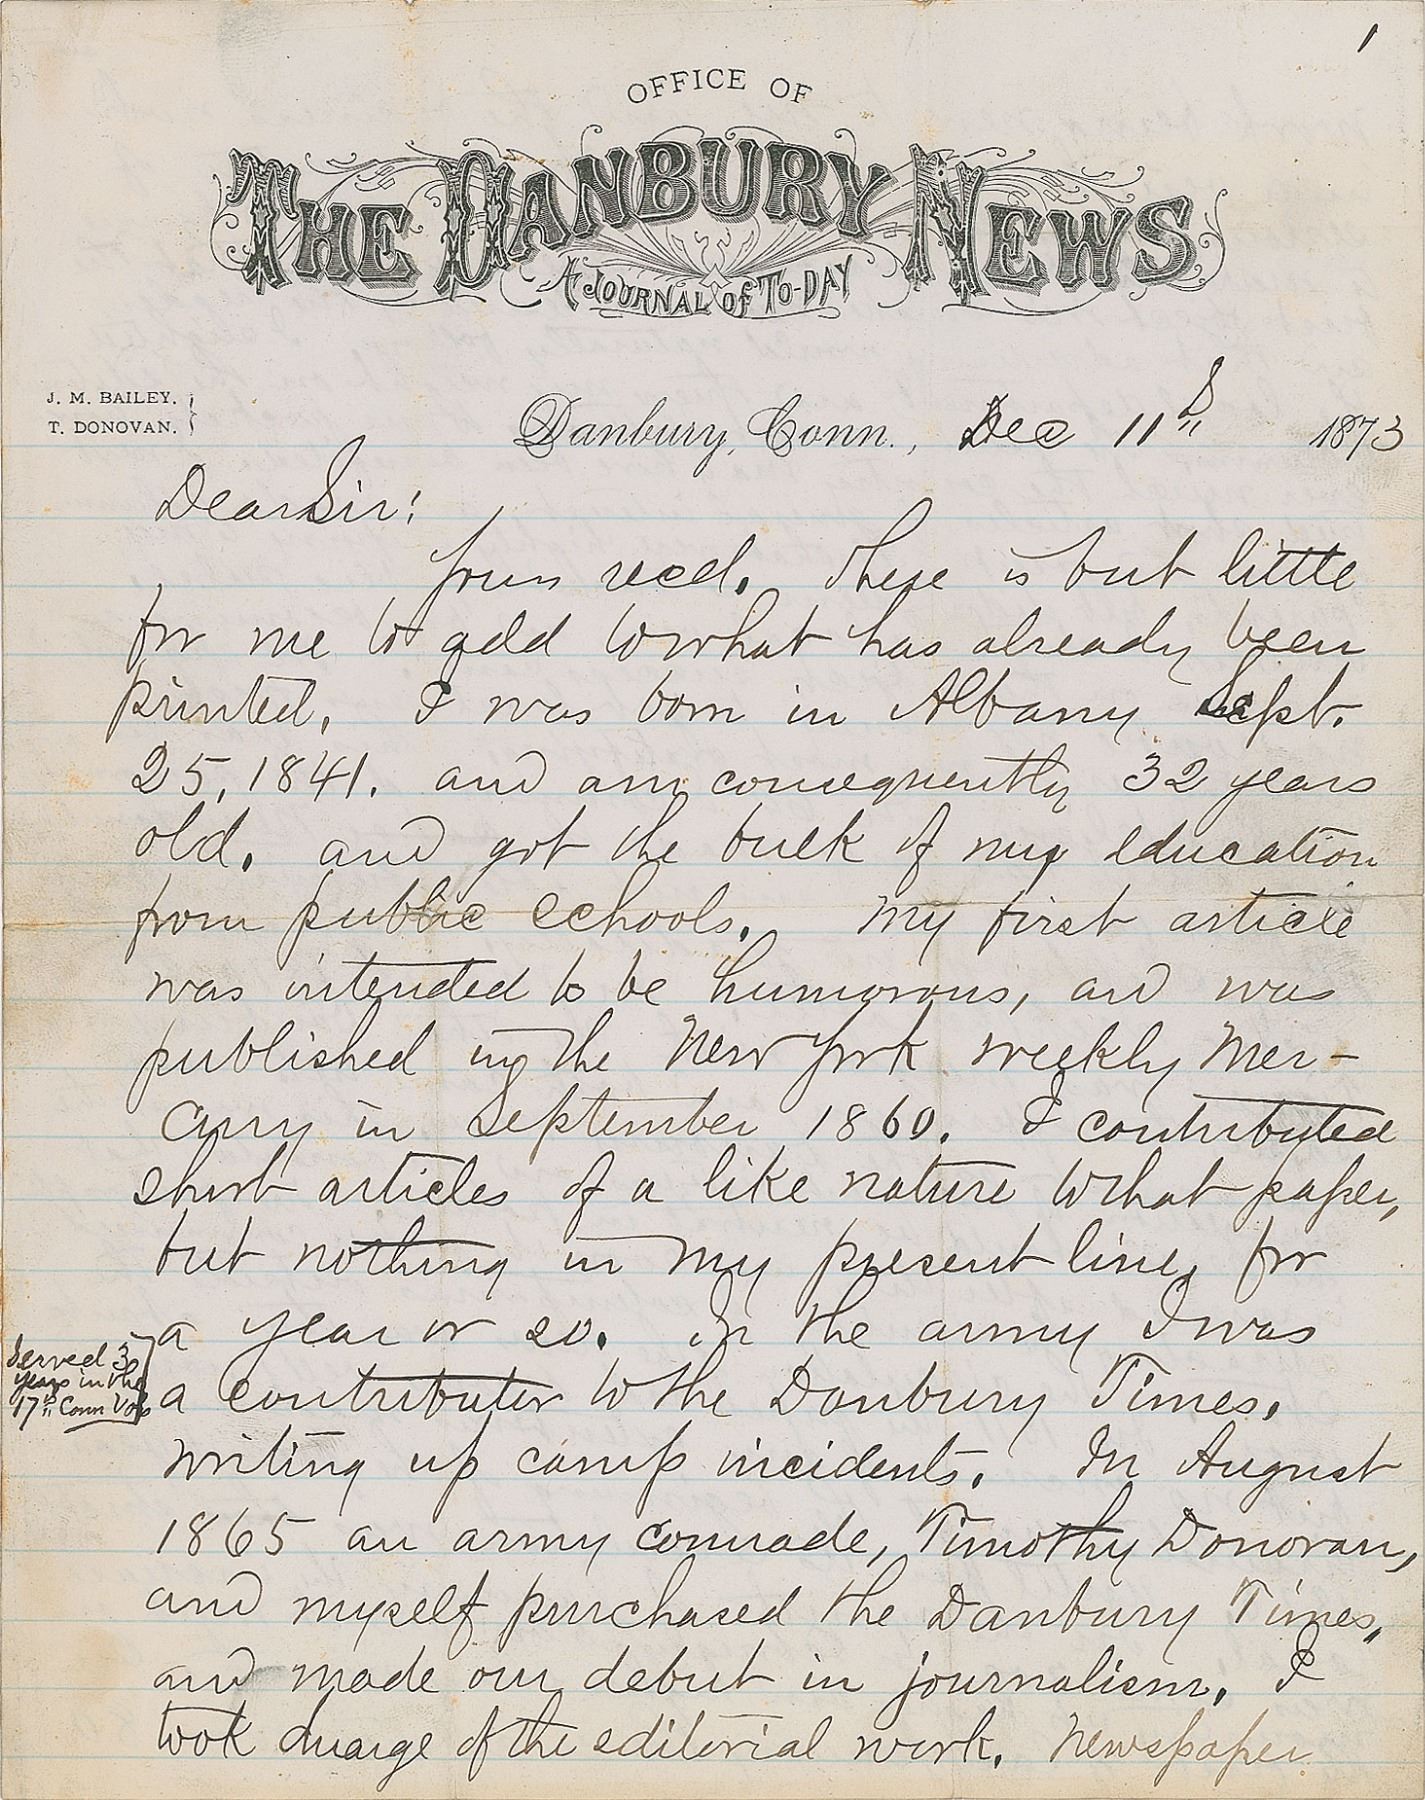 1
OFFICE OF
THE DANBURY NEWS
A JOURNAL OF TO-DAY
J. M. BAILEY.
T. DONOVAN.
Danbury, Conn., Dec 11th 1873
Dear Sir:
Yours recd. There is but little
for me to add to what has already been
printed. I was born in Albany Sept.
25, 1841. and am consequently 32 years
old. and got the bulk of my education
from public schools. My first article
was intended to be humorous, and was
published in the New York weekly Mer-
cury in September 1860. I contributed
short articles of a like nature to that paper,
but nothing in my present line, for
a year or so. In the army I was
Served 3
years in the
17th Conn Vols
a contributor to the Danbury Times.
writing up camp incidents. In August
1865 an army comrade, Timothy Donovan,
and myself purchased the Danbury Times,
and made our debut in journalism. I
took charge of the editorial work. Newspaper